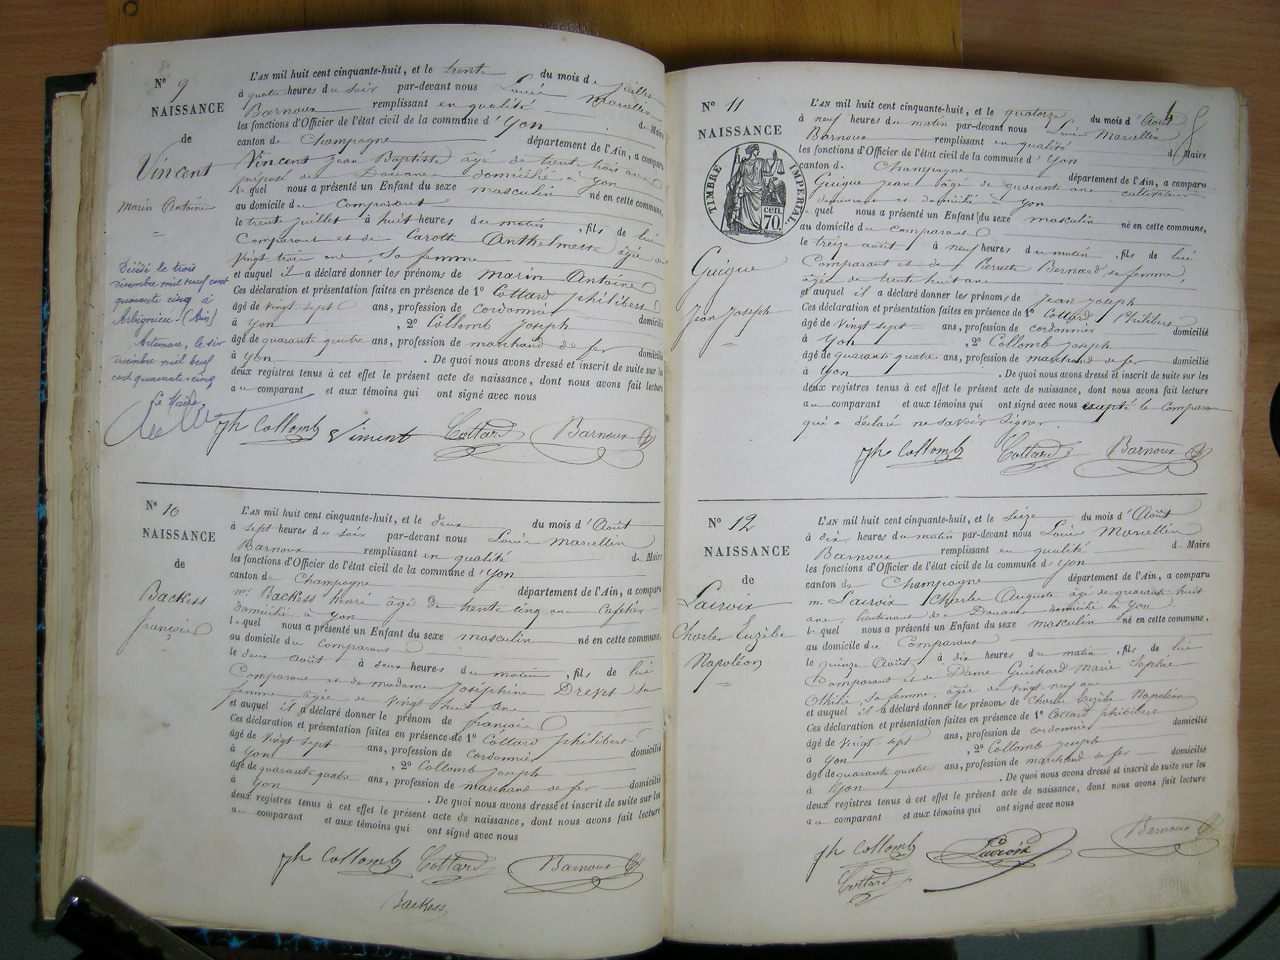 N° 9
NAISSANCE
de
Vincent
Marin Antoine
Décédé le trois
décembre mil neuf cent
quarante cinq à
Arbignieu (Ain)
Artemare, le six
décembre mil neuf
cent quarante-cinq
Le Maire
L'AN mil huit cent cinquante-huit, et le trente du mois de juillet
à quatre heures du soir par-devant nous Louis Marcellin
Barnoux remplissant en qualité de Maire
les fonctions d'Officier de l'état civil de la commune d'Yon
canton de Champagne département de l'Ain, a comparu
Vincent Jean Baptiste âgé de trente trois ans
préposé des Douanes domicilié à Yon
lequel nous a présenté un Enfant du sexe masculin né en cette commune,
au domicile du Comparant
le trente juillet à huit heures du matin, fils de lui
Comparant et de Carotte Anthelmette âgée de
vingt trois ans, sa femme
et auquel il a déclaré donner les prénoms de Marin Antoine
Ces déclaration et présentation faites en présence de 1° Cottard philibert
âgé de vingt sept ans, profession de cordonnier domicilié
à Yon, 2° Collomb Joseph
âgé de quarante quatre ans, profession de marchand de fer domicilié
à Yon. De quoi nous avons dressé et inscrit de suite sur les
deux registres tenus à cet effet le présent acte de naissance, dont nous avons fait lecture
au comparant et aux témoins qui ont signé avec nous
Jh Collomb Vincent Cottard Barnoux
N° 10
NAISSANCE
de
Backess
françois
L'AN mil huit cent cinquante-huit, et le deux du mois d'Août
à sept heures du soir par-devant nous Louis Marcellin
Barnoux remplissant en qualité de Maire
les fonctions d'Officier de l'état civil de la commune d'Yon
canton de Champagne département de l'Ain, a comparu
Mr Backess henri âgé de trente cinq ans
domicilié à Yon
lequel nous a présenté un Enfant du sexe masculin né en cette commune,
au domicile du Comparant
le deux août à deux heures du matin, fils de lui
Comparant et de madame Joséphine Drevet sa
femme âgée de vingt huit ans
et auquel il a déclaré donner le prénom de françois
Ces déclaration et présentation faites en présence de 1° Cottard philibert
âgé de vingt sept ans, profession de cordonnier domicilié
à Yon, 2° Collomb Joseph
âgé de quarante quatre ans, profession de marchand de fer domicilié
à Yon. De quoi nous avons dressé et inscrit de suite sur les
deux registres tenus à cet effet le présent acte de naissance, dont nous avons fait lecture
au comparant et aux témoins qui ont signé avec nous
Jh Collomb Cottard Barnoux
Backess
N° 11
NAISSANCE
TIMBRE IMPERIAL
70
Guigue
Jean Joseph
L'AN mil huit cent cinquante-huit, et le quatorze du mois d'Août
à neuf heures du matin par-devant nous Louis Marcellin
Barnoux remplissant en qualité de Maire
les fonctions d'Officier de l'état civil de la commune d'Yon
canton de Champagne département de l'Ain, a comparu
Guigue Jean âgé de quarante ans cultivateur
demeurant et domicilié à Yon
lequel nous a présenté un Enfant du sexe masculin né en cette commune,
au domicile du comparant
le treize août à neuf heures du matin, fils de lui
Comparant et de Pierrette Bernard sa femme,
âgée de trente huit ans
et auquel il a déclaré donner les prénoms de Jean Joseph
Ces déclaration et présentation faites en présence de 1° Cottard Philibert
âgé de vingt sept ans, profession de cordonnier domicilié
à Yon, 2° Collomb Joseph
âgé de quarante quatre ans, profession de marchand de fer domicilié
à Yon. De quoi nous avons dressé et inscrit de suite sur les
deux registres tenus à cet effet le présent acte de naissance, dont nous avons fait lecture
au comparant et aux témoins qui ont signé avec nous excepté le comparant
qui a déclaré ne savoir signer.
Jh Collomb Cottard Barnoux
N° 12
NAISSANCE
de
Lacroix
Charles Euzèbe
Napoléon
L'AN mil huit cent cinquante-huit, et le seize du mois d'Août
à dix heures du matin par-devant nous Louis Marcellin
Barnoux remplissant en qualité de Maire
les fonctions d'Officier de l'état civil de la commune d'Yon
canton de Champagne département de l'Ain, a comparu
M. Lacroix Charles Auguste âgé de quarante huit
ans, lieutenant de Douane domicilié à Yon
lequel nous a présenté un Enfant du sexe masculin né en cette commune,
au domicile du Comparant
le quinze Août à dix heures du matin, fils de lui
Comparant et de Dame Guichard Marie Sophie
sa femme, âgée de vingt neuf ans
et auquel il a déclaré donner les prénoms de Charles Euzèbe Napoléon
Ces déclaration et présentation faites en présence de 1° Cottard philibert
âgé de vingt sept ans, profession de cordonnier domicilié
à Yon, 2° Collomb Joseph
âgé de quarante quatre ans, profession de marchand de fer domicilié
à Yon. De quoi nous avons dressé et inscrit de suite sur les
deux registres tenus à cet effet le présent acte de naissance, dont nous avons fait lecture
au comparant et aux témoins qui ont signé avec nous
Jh Collomb Lacroix Barnoux
Cottard